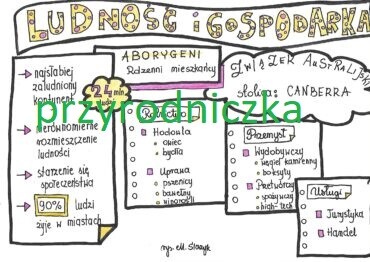 LUDNOŚĆ i GOSPODARKA
ABORYGENI
Rdzenni mieszkańcy
ZWIĄZEK AUSTRALIJSKI
stolica: CANBERRA
najsłabiej
zaludniony
kontynent
24 mln
przyrodniczka
nierównomierne
rozmieszczenie
ludności
starzenie się
społeczeństwa
90% ludzi
żyje w miastach
Rolnictwo
Hodowla
owiec
bydła
Uprawa
pszenicy
bawełny
winorośli
Przemysł
Wydobywczy
węgiel kamienny
boksyty
Przetwórczy
spożywczy
high-tech
Usługi
Turystyka
Handel